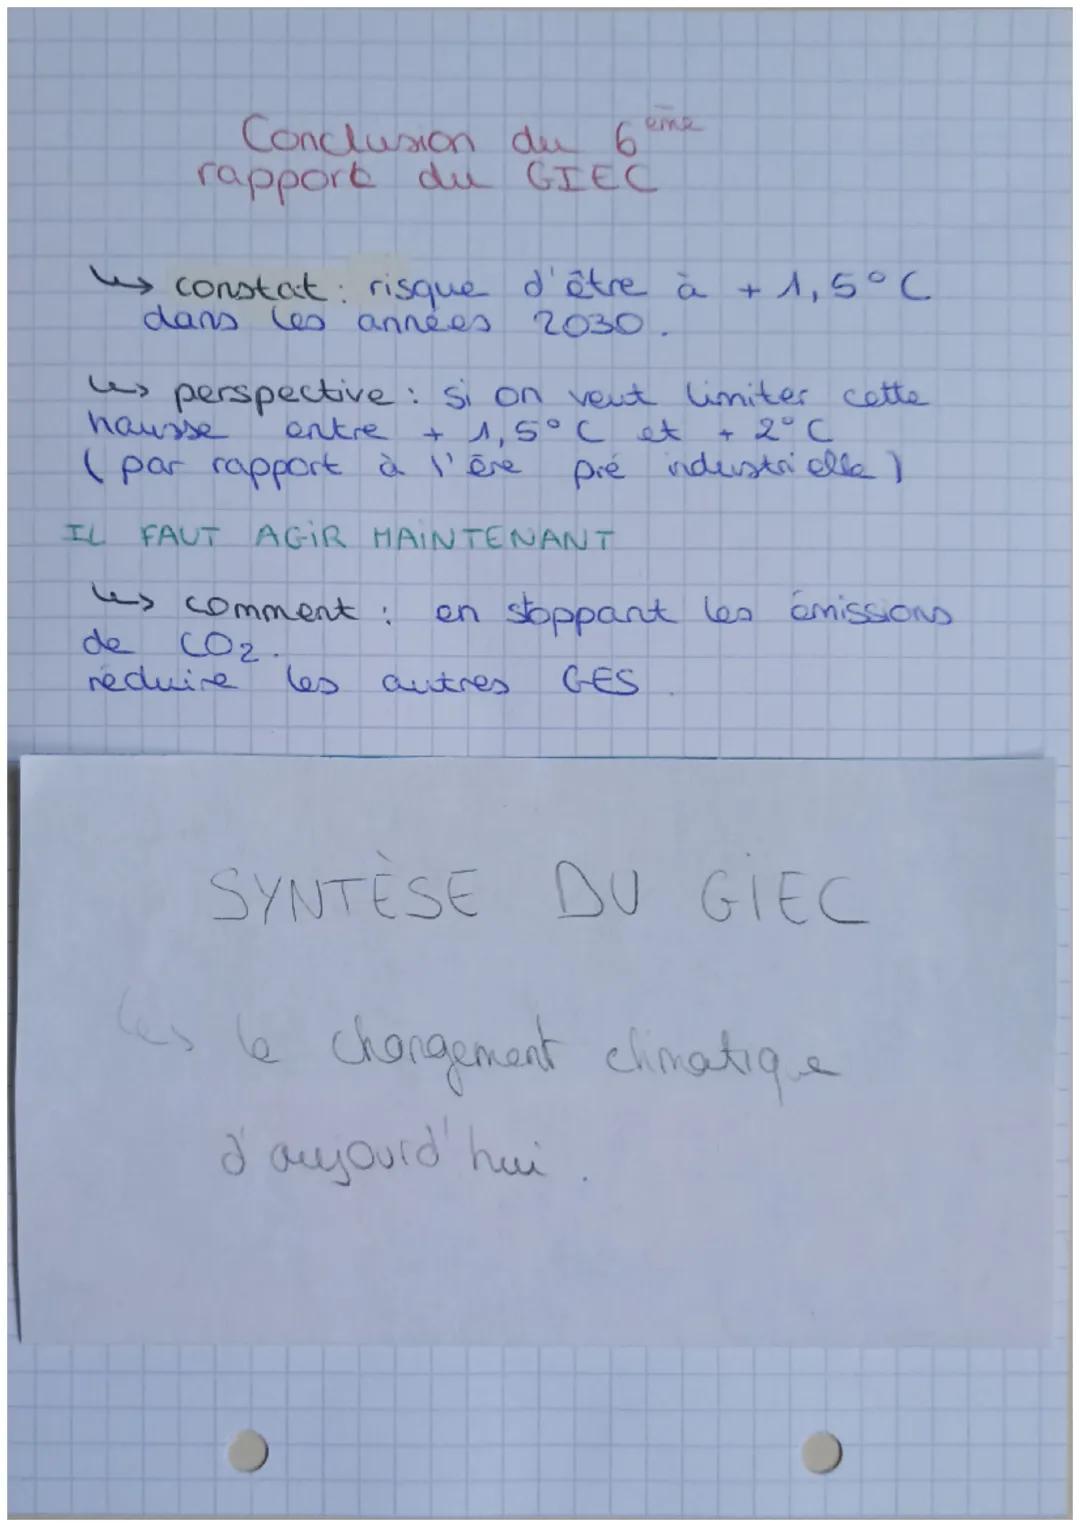 Conclusion du 6ème
rapport du GIEC
↳ constat : risque d'être à + 1,5°C
dans les années 2030.
↳ perspective : si on veut limiter cette
hausse entre + 1,5°C et + 2°C
(par rapport à l'ère pré industrielle)
IL FAUT AGIR MAINTENANT
↳ comment : en stoppant les émissions
de CO2.
réduire les autres GES.
SYNTÈSE DU GIEC
↳ le changement climatique
d'aujourd'hui.